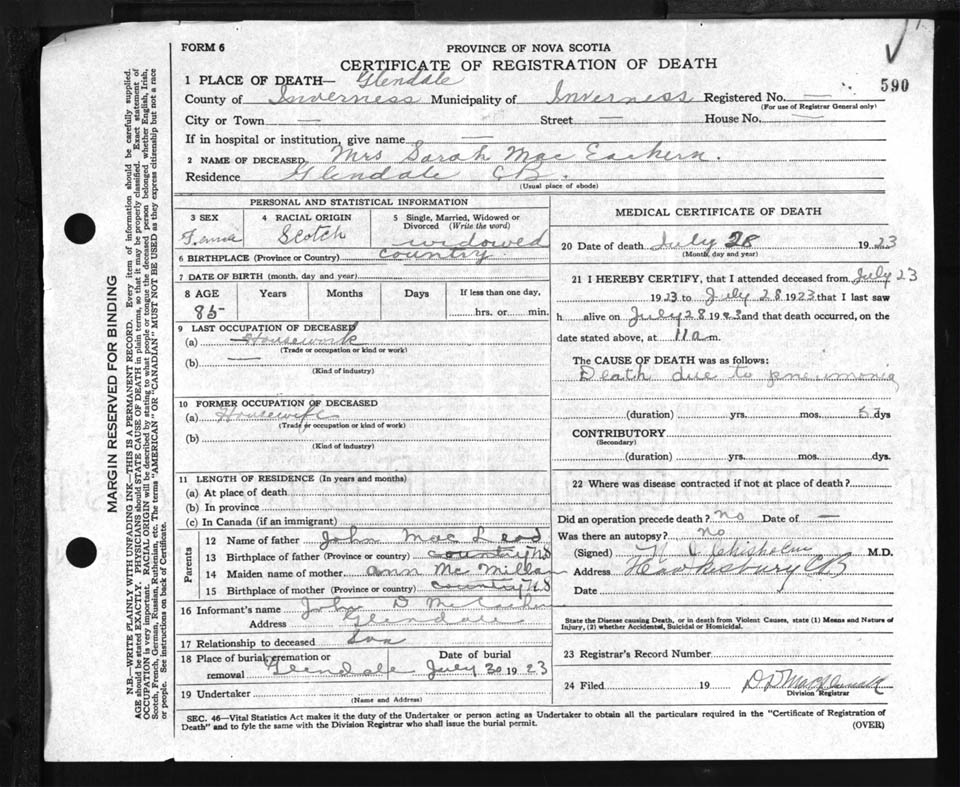 FORM 6
PROVINCE OF NOVA SCOTIA
CERTIFICATE OF REGISTRATION OF DEATH
590
1 PLACE OF DEATH— Glendale
County of Inverness Municipality of Inverness Registered No. —
(For use of Registrar General only)
City or Town — Street — House No. —
If in hospital or institution, give name —
2 NAME OF DECEASED. Mrs Sarah Mac Eachern.
Residence Glendale CB.
(Usual place of abode)
PERSONAL AND STATISTICAL INFORMATION
3 SEX 4 RACIAL ORIGIN 5 Single, Married, Widowed or Divorced (Write the word)
Female Scotch widowed
6 BIRTHPLACE (Province or Country) country
7 DATE OF BIRTH (month, day and year)
8 AGE Years Months Days If less than one day,
85 hrs. or min.
9 LAST OCCUPATION OF DECEASED
(a) Housework
(Trade or occupation or kind or work)
(b) —
(Kind of industry)
10 FORMER OCCUPATION OF DECEASED
(a) Housewife
(Trade or occupation or kind of work)
(b)
(Kind of industry)
11 LENGTH OF RESIDENCE (In years and months)
(a) At place of death
(b) In province
(c) In Canada (if an immigrant)
Parents
12 Name of father John Mac Leod
13 Birthplace of father (Province or country) country NS
14 Maiden name of mother Ann Mc Millan
15 Birthplace of mother (Province or country) country NS
16 Informant's name John D McEachern
Address Glendale
17 Relationship to deceased Son
18 Place of burial, cremation or removal Glendale Date of burial July 30 1923
19 Undertaker
(Name and Address)
MEDICAL CERTIFICATE OF DEATH
20 Date of death July 28 1923
(Month, day and year)
21 I HEREBY CERTIFY, that I attended deceased from July 23
1923 to July 28 1923 that I last saw
h alive on July 28 1923 and that death occurred, on the
date stated above, at 11 a m.
The CAUSE OF DEATH was as follows:
Death due to pneumonia
(duration) yrs. mos. 5 dys
CONTRIBUTORY
(Secondary)
(duration) yrs. mos. dys.
22 Where was disease contracted if not at place of death?
Did an operation precede death? no Date of —
Was there an autopsy? no
(Signed) Chisholm M.D.
Address Hawkesbury CB
Date
State the Disease causing Death, or in death from Violent Causes, state (1) Means and Nature of
Injury, (2) whether Accidental, Suicidal or Homicidal.
23 Registrar's Record Number
24 Filed 19 D D MacDonald
Division Registrar
SEC. 46—Vital Statistics Act makes it the duty of the Undertaker or person acting as Undertaker to obtain all the particulars required in the "Certificate of Registration of
Death" and to fyle the same with the Division Registrar who shall issue the burial permit.
(OVER)
MARGIN RESERVED FOR BINDING
N.B.—WRITE PLAINLY WITH UNFADING INK—THIS IS A PERMANENT RECORD. Every item of information should be carefully supplied.
AGE should be stated EXACTLY. PHYSICIANS should STATE CAUSE OF DEATH in plain terms, so that it may be properly classified. Exact statement of
OCCUPATION is very important. RACIAL ORIGIN will be described by stating to what people or tongue the deceased person belonged whether English, Irish,
Scotch, French, German, Russian, Ruthenian, etc. The terms "AMERICAN" OR "CANADIAN" MUST NOT BE USED as they express citizenship but not a race
or people. See instructions on back of Certificate.